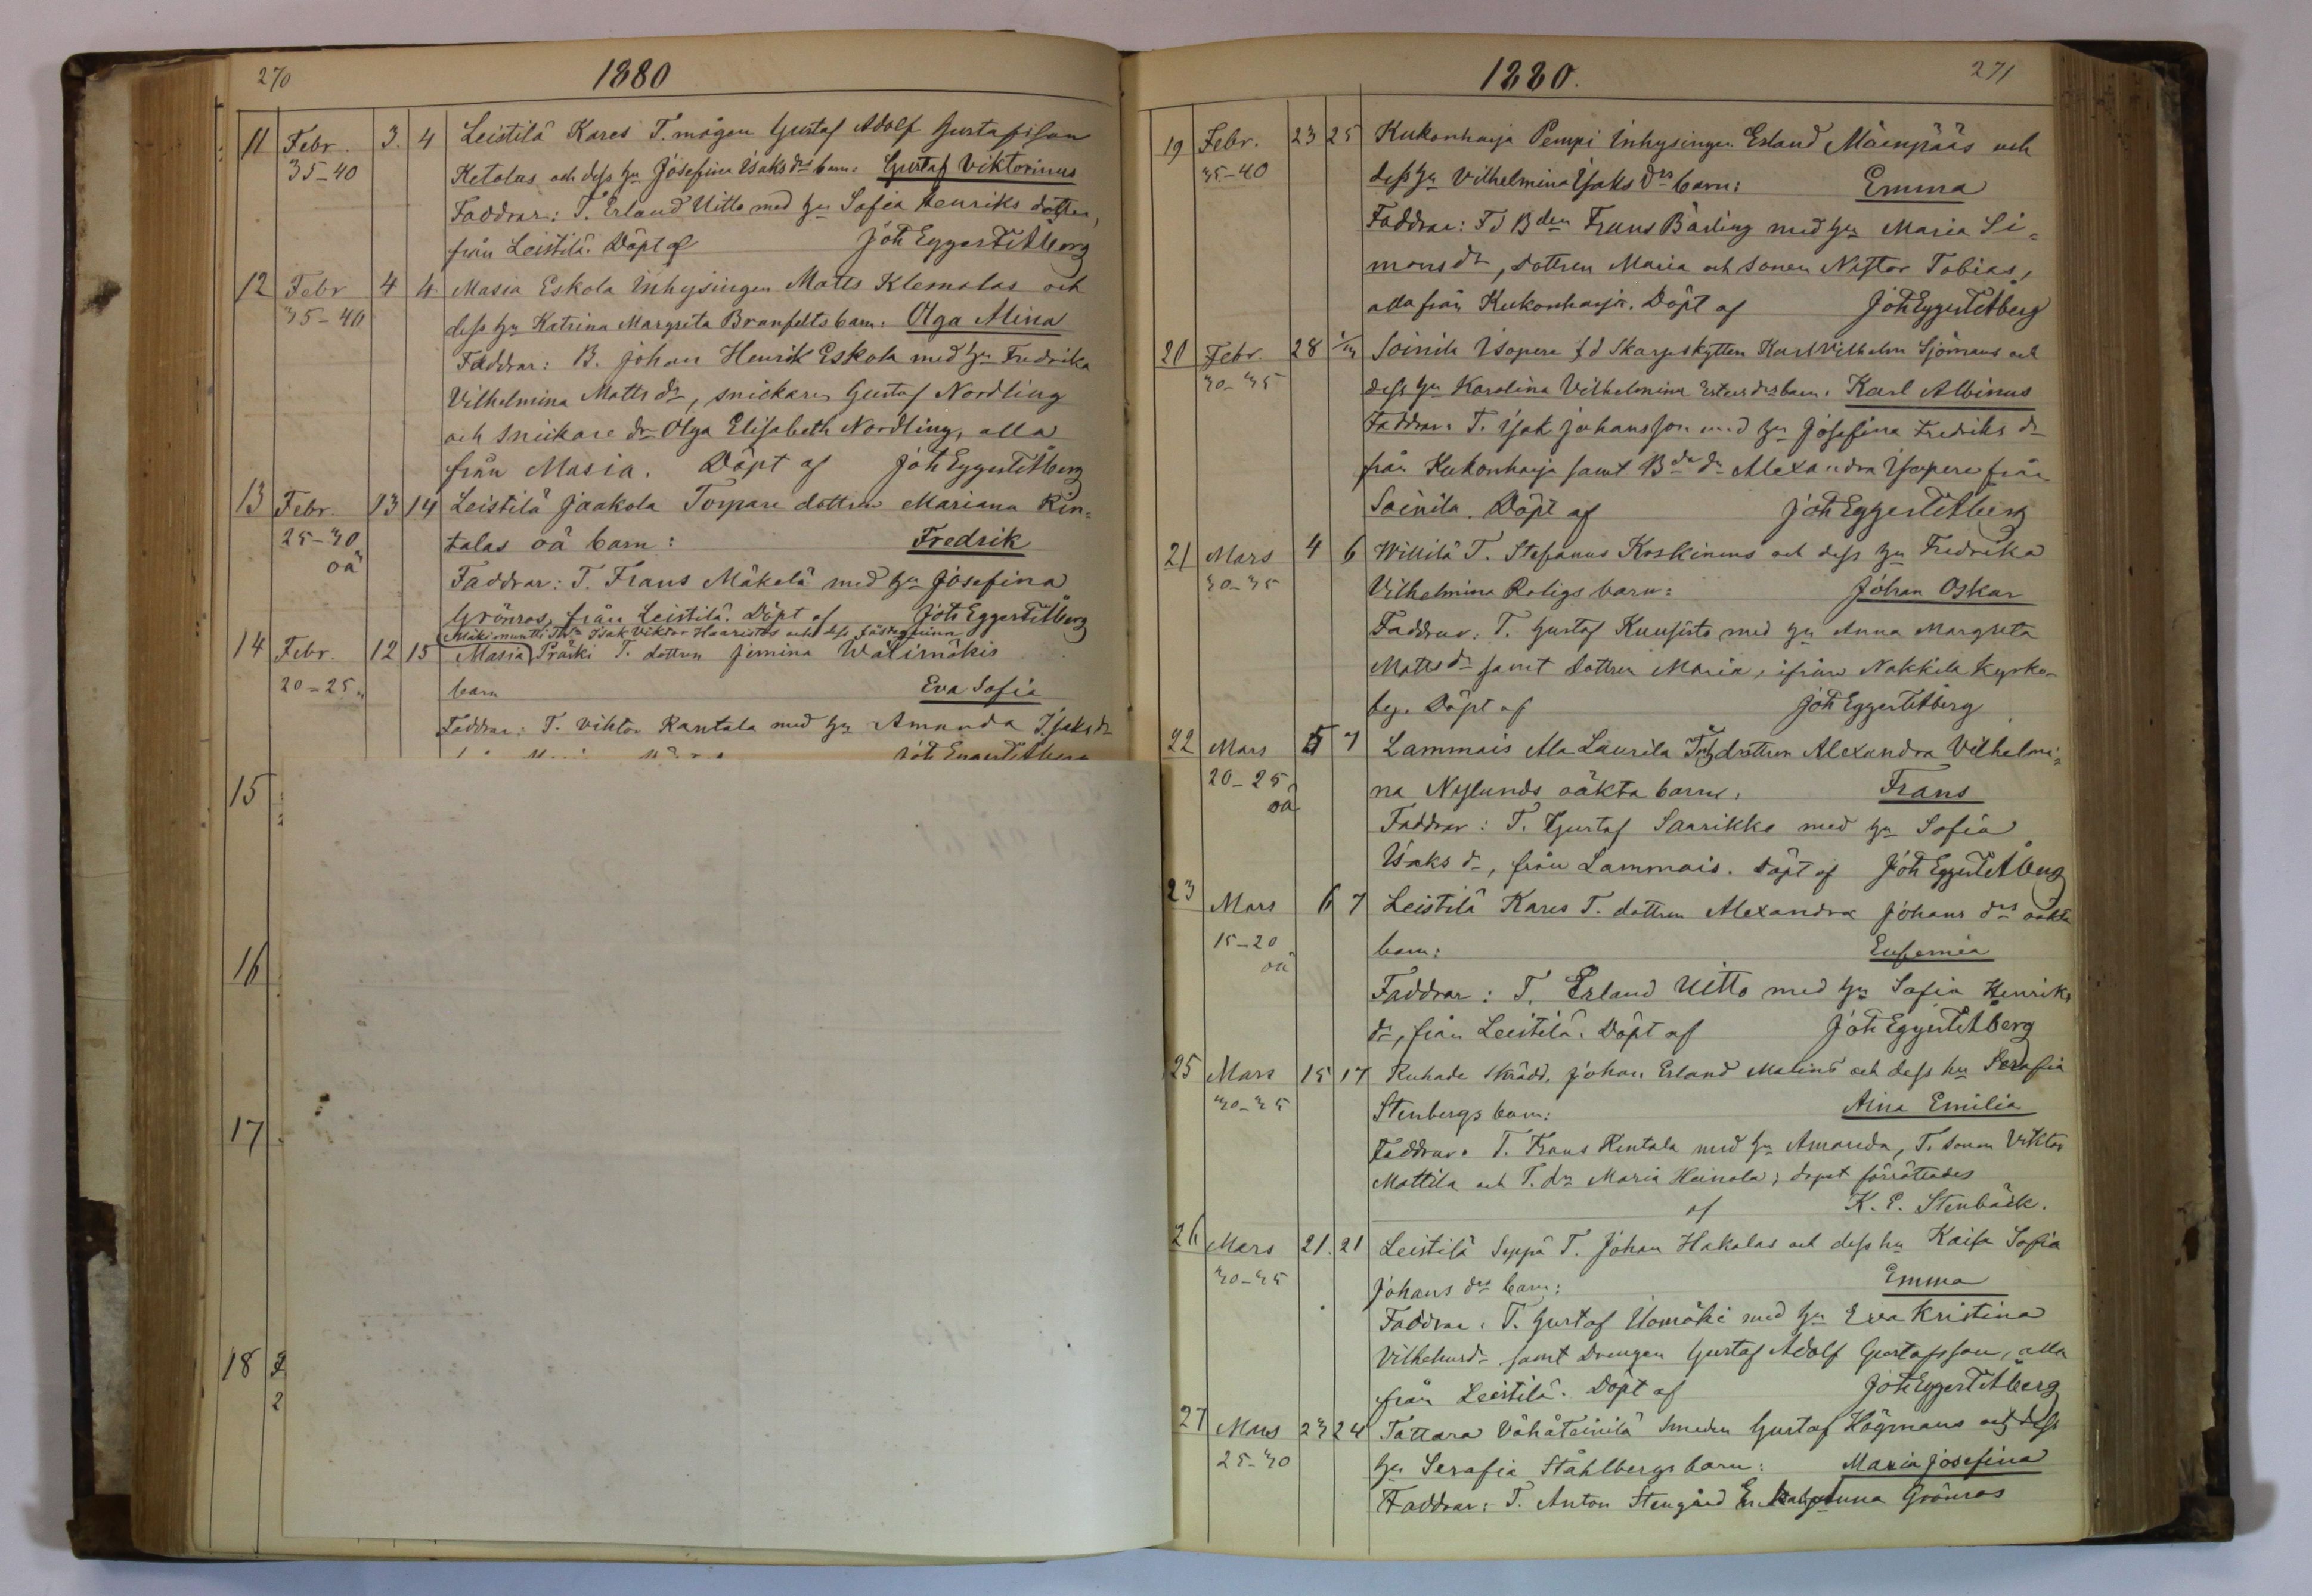 270
1880
11 Febr. 3. 4 Leistilä Kares T. mågen Gustaf Adolf Gustafsson
35-40 Ketolas och dess hu Josefina Isaks drs barn: Gustaf Viktorinus
Faddrar: T. Erland Uitto med hu Sofia Henriks dotter,
från Leistilä. Döpt af Joh Eggert Åberg
12 Febr 4 4 Masia Eskola Inhysingen Matts Klemolas och
35-40 dess hu Katrina Margreta Branfelts barn: Olga Alina
Faddrar: B. Johan Henrik Eskola med hu Fredrika
Vilhelmina Matts dr, snickaren Gustaf Nordling
och snickare dr Olga Elisabeth Nordling, alla
från Masia. Döpt af Joh Eggert Åberg
13 Febr. 13 14 Leistilä Jaakola Torpare dottren Mariana Rin=
25-30 talas oä barn: Fredrik
oä
Faddrar: T. Frans Mäkelä med hu Josefina
Grönroos, från Leistilä. Döpt af Joh Eggert Åberg
Isak Viktor Haaristos och dess fästeqvinna
14 Febr. 12 15 Masia Präiki T. dottren Jemina Välimäkis
20-25 barn Eva Sofia
Faddrar: T. Viktor Rantala med hu Amanda Isaks dr
15
16
17
18 F
2
1880.
271
19 Febr. 23 25 Kukonharja Pempi Inhysingen Erland Mäenpääs och
35-40 dess hu Vilhelmina Isaks drs barn: Emma
Faddrar: Fd Bden Frans Bärling med hu Maria Si=
mons dr, dottren Maria och sonen Nestor Tobias,
alla från Kukonharja. Döpt af Joh Eggert Åberg
20 Febr. 28 1/III Soinila Isopere fd Skarpskytten Karl Vilhelm Sjömans och
30-35 dess hu Karolina Vilhelmina drs barn: Karl Albinus
Faddrar: T. Isak Johansson med hu Josefina Fredriks dr
från Kukonharja samt Bde dr Alexandra Isopere från
Soinila. Döpt af Joh Eggert Åberg
21 Mars 4 6 Willilä T. Stefanus Koskinens och dess hu Fredrika
30-35 Vilhelmina Roligs barn: Johan Oskar
Faddrar: T. Gustaf Kuusisto med hu Anna Margreta
Matts dr samt dottren Maria, ifrån Nakkila kyrko=
by. Döpt af Joh Eggert Åberg
22 Mars 5 7 Lammais Ala Laurila dottren Alexandra Vilhelmi=
20-25 na Nylunds oäkta barn: Frans
oä
Faddrar: T. Gustaf Saarikko med hu Sofia
Isaks dr, från Lammais. Döpt af Joh Eggert Åberg
23 Mars 6 7 Leistilä Kares T. dottren Alexandra Johans drs oäkta
15-20 barn: Eufemia
oä
Faddrar: T. Erland Uitto med hu Sofia Henriks
dr, från Leistilä. Döpt af Joh Eggert Åberg
25 Mars 15 17 Ruhade skrädd. Johan Erland Malins och dess hu Serafia
30-35 Stenbergs barn: Aina Emilia
Faddrar: T. Frans Rentola med hu Amanda, T. sonen Viktor
Mattila och T. dr Maria Heinola; dopet förrättades
af K. E. Stenbäck.
26 Mars 21. 21 Leistilä Seppä T. Johan Hakalas och dess hu Kaisa Sofia
30-35 Johans drs barn: Emma
Faddrar: T. Gustaf Uomäki med hu Eva Kristina
Vilhelmsdr samt Drengen Gustaf Adolf Gustafsson, alla
från Leistilä. Döpt af Joh Eggert Åberg
27 Mars 23 24 Tattara Vähäteinilä Smeden Gustaf Högmans och dess
25-30 hu Serafia Ståhlbergs barn: Maria Josefina
Faddrar: T. Anton Stengård Grönroos